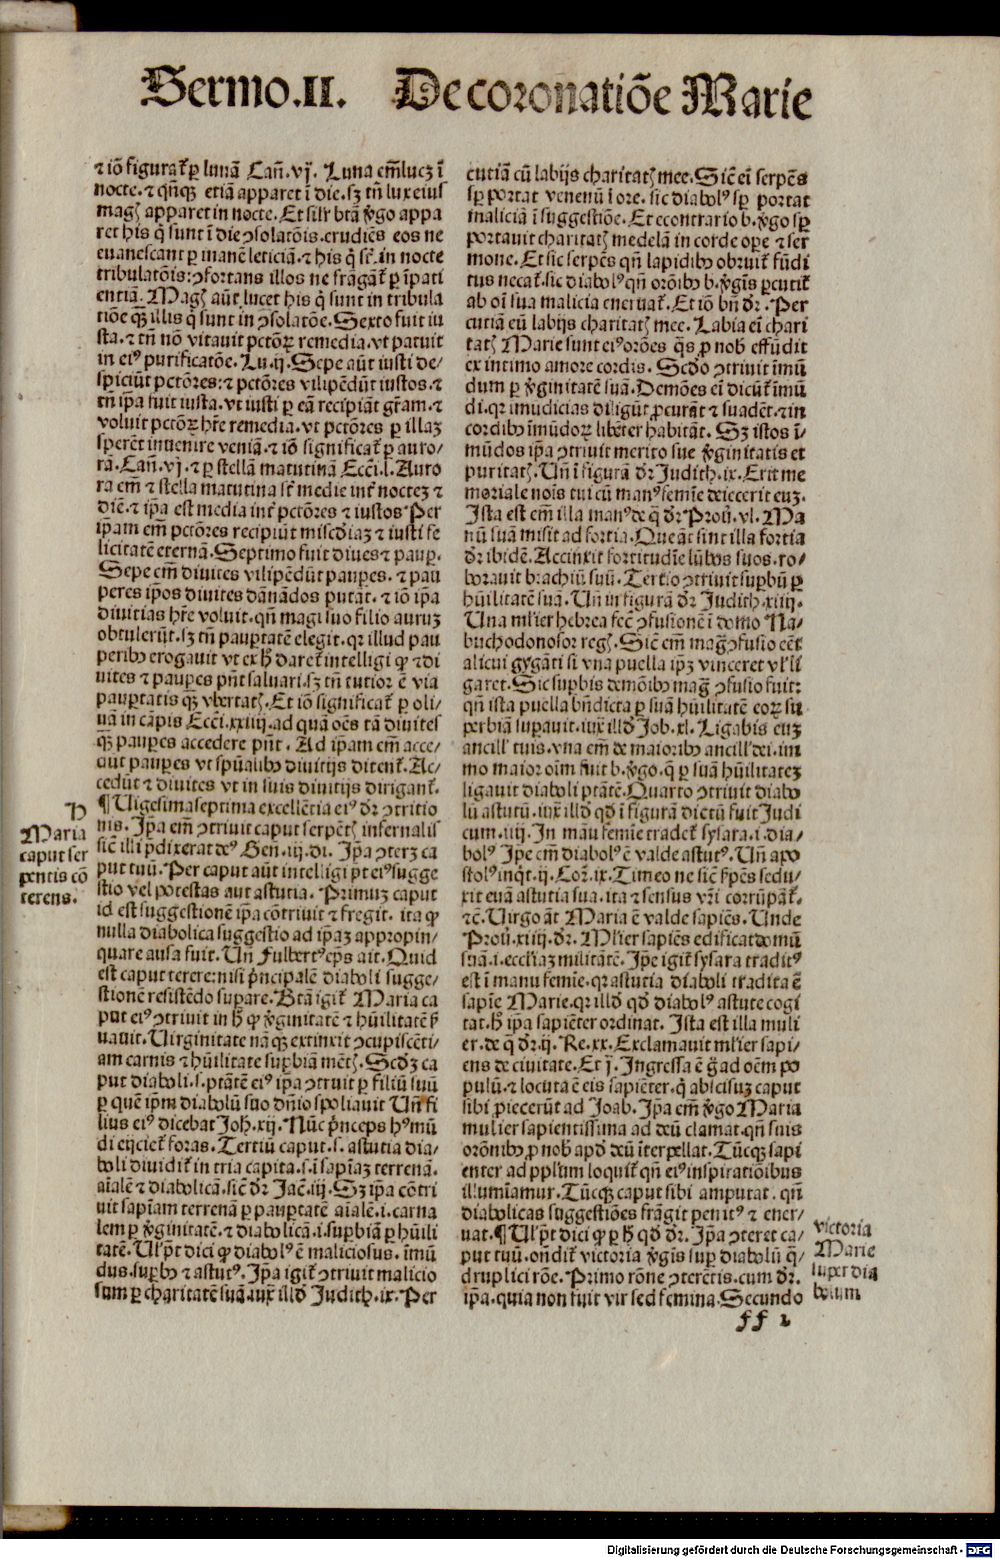 Sermo.II. De coronatiõe Marie
⁊ iõ figurat̃ ꝑ lunã Cañ.vj. Luna em̃ lucꝫ ĩ
nocte.⁊ qñqꝫ etiã apparet ĩ die.sꝫ tñ lux eius
magꝭ apparet in nocte. Et sil'r btã ꝟgo appa
ret his q̃ sunt ĩ die ꝯsolatõis.erudiẽs eos ne
euanescant ꝑ inanẽ leticiã.⁊ his q̃ sĩ. in nocte
tribulatõis: ꝯfortans illos ne frãgãt̃ ꝑ ĩpati
entiã. Magꝭ aũt lucet his q̃ sunt in tribula
tiõe qꝫ illis q̃ sunt in ꝯsolatõe. Sexto fuit iu
sta.⁊ tñ nõ vitauit pctõꝝ remedia.vt patuit
in eiꝰ purificatõe. Lu.ij. Sepe aũt iusti de/
spiciũt pctõres:⁊ pctõres vilipẽdũt iustos.⁊
tñ ip̃a fuit iusta.vt iusti ꝑ eã recipiãt gr̃am.⁊
voluit pctõꝝ hr̃e remedia.vt pctõres ꝑ illaꝫ
sperẽt inuenire veniã.⁊ iõ significat̃ ꝑ auro/
rã. Cañ.vj.⁊ ꝑ stellã matutinã Ecc̃i.l. Auro
ra em̃ ⁊ stella matutina sĩ medie int̃ noctẽ ⁊
diẽ.⁊ ip̃a est media int̃ pctõres ⁊ iustos Per
ip̃am em̃ pctõres recipiũt misc̃diaꝫ ⁊ iusti fe
licitatẽ eternã. Septimo fuit diues ⁊ paup̱.
Sepe em̃ diuites vilipẽdũt paup̱es.⁊ pau
peres ip̃os diuites dãnãdos putãt.⁊ iõ ip̃a
diuitias hr̃e voluit.qñ magi suo filio aurum
obtulerũt.sꝫ tñ paup̱tatẽ elegit.qr illud pau
peribꝰ erogauit vt ex hꝭ daret̃ intelligi ꝙ ⁊ di
uites ⁊ paup̱es pñt saluari.sꝫ tñ tutior ẽ via
paup̱tatis qꝫ vbertatꝭ. Et iõ significat̃ ꝑ oli/
uã in cãpis Ecc̃i.xxiiij.ad quã oẽs tã diuites
qꝫ paup̱es accedere pñt. Ad ip̃am em̃ acce/
dũt paup̱es vt sp̃ualibꝰ diuitijs ditent̃. Ac/
cedũt ⁊ diuites vt in suis diuitijs dirigant̃.
¶ Uigesimaseptima excellẽtia eiꝰ dr̃ ꝯtritio
nis. Ip̃a em̃ ꝯtriuit caput serpẽtꝭ infernalis
P
Maria
caput ser
pentis cõ
terens.
sič illi p̃dixerat deꝰ Geñ.iij.di. Ip̃a ꝯterꝫ ca
put tuũ. Per caput aũt intelligi pt̃ eiꝰ sugge
stio vel potestas aut astutia. Primuꝫ caput
id est suggestionẽ ip̃a cõtriuit ⁊ fregit. ita ꝙ
nulla diabolica suggestio ad ip̃aꝫ appropin/
quare ausa fuit. Uñ Fulbertꝰ ep̃s ait. Quid
est caput terere:nisi p̃ncipalẽ diaboli sugge/
stionẽ resistẽdo supare. Btã igit̃ Maria ca
put eiꝰ ꝯtriuit in hꝭ ꝙ ꝟginitatẽ ⁊ hũilitatẽ ẜ
uauit. Uirginitate nãqꝫ extinxit ꝯcupiscẽti/
am carnis ⁊ hũilitate sup̱biã mẽtꝭ. Scd̃ꝫ ca
put diaboli.s.ptãtẽ eiꝰ ip̃a ꝯtriuit ꝑ filiũ suũ
ꝑ quẽ ip̃m diabolũ suo dñio spoliauit Uñ fi
lius eiꝰ dicebat Joh.xij. Nũc p̃nceps hꝰ mũ
di eijciet̃ foras. Tertiũ caput.s. astutia dia/
boli diuidit̃ in tria capita.s.ĩ sap̃iaꝫ terrenã.
aĩalẽ ⁊ diabolicã.sič dr̃ Jac̃.iij. Sꝫ ip̃a cõtri
uit sap̃iam terrenã ꝑ paup̱tatẽ aĩalẽ.i.carna
lem ꝑ ꝟginitatẽ.⁊ diabolicã.i.sup̱biã ꝑ hũili
tatẽ. Ul' p̃t dici ꝙ diabolꝰ ẽ maliciosus.ĩmũ
dus.sup̱bꝰ ⁊ astutꝰ. Ip̃a igit̃ ꝯtriuit malicio
sum ꝑ charitatẽ suã.iux̃ illd̃ Judith.ix. Per
cutiã cũ labijs charitatꝭ mee. Sič eĩ serpẽs
sp̱ portat venenũ ĩ ore. sic diabolꝰ sp̱ portat
maliciã ĩ suggestiõe. Et econtrario b.ꝟgo sp̱
portauit charitatꝭ medelã in corde oꝑe ⁊ ser
mone. Et sic serpẽs qñ lapidibꝰ obruit̃ fũdi
tus necat̃.sic diabolꝰ qñ orõibꝰ b.ꝟgĩs ꝑcutit̃
ab oĩ sua malicia eneruat̃. Et iõ bñ dr̃. Per
cutiã eũ labijs charitatꝭ mee. Labia eĩ chari
tatꝭ Marie sunt eiꝰ orões q̃s ꝓ nobꝭ effũdit
ex intimo amore cordis. Scd̃o ꝯtriuit ĩmũ
dum ꝑ ꝟginitatẽ suã. Demões eĩ dicũt̃ ĩmũ
di.qr imũdicias diligũt ꝓcurãt ⁊ suadẽt.⁊ in
cordibꝰ ĩmũdoꝝ libẽter habitãt. Sꝫ istos ĩ/
mũdos ip̃a ꝯtriuit merito sue ꝟginitatis et
puritatꝭ. Uñ ĩ figurã dr̃ Judith.ix. Erit me
moriale noĩs tui cũ manꝰ femĩe deiecerit euꝫ.
Ista est em̃ illa manꝰ de q̃ dr̃ Prou̇.vl. Ma
nũ suã misit ad fortia. Que ãt sint illa fortia
dr̃ ibidẽ. Accinxit fortitudĩe lũbos suos.ro/
borauit brachiũ suũ. Tertio ꝯtriuit sup̱bũ ꝑ
hũilitatẽ suã. Uñ in figurã dr̃ Judith.xiiij.
Una ml'ier hebrea fec̃ ꝯfusionẽ ĩ domo Na/
buchodonosor regꝭ. Sič em̃ mag̃ ꝯfusio eẽt
alicui gygãti si vna puella ip̃ꝫ vinceret vl' li
garet. Sic sup̱bis demõibꝰ mag̃ ꝯfusio fuit:
qñ ista puella bñdicta ꝑ suã hũilitatẽ eoꝝ su
perbiã supauit.iux̃ illd̃ Job.xl. Ligabis euꝫ
ancill' tuis.vna em̃ de maioribꝰ ancill' dei.im
mo maior oĩm fuit b.ꝟgo.q̃ ꝑ suã hũilitateꝫ
ligauit diaboli ptãtẽ. Quarto ꝯtriuit diabo
lũ astutũ.iux̃ illd̃ qd̃ ĩ figurã dictũ fuit Judi
cum.iiij. In mãu femĩe tradet̃ sysara.i.dia/
bolꝰ. Ip̃e em̃ diabolꝰ ẽ valde astutꝰ. Uñ apo
stolꝰ inq̃t.ij. Coꝝ.ix. Timeo ne sič ẜpẽs sedu/
xit euã astutia sua.ita ⁊ sensus vr̃i corrũpãt̃.
⁊c̃. Uirgo ãt Maria ẽ valde sapiẽs. Unde
Prou̇.xiiij.dr̃. Ml'ier sapiẽs edificat domũ
suã.i.eccl'iaꝫ militãtẽ. Ip̃e igit̃ sysara traditꝰ
est ĩ manu femĩe.qr astutia diaboli tradita ẽ
sapĩe Marie.qr illd̃ qd̃ diabolꝰ astute cogi
tat.hꝭ ip̃a sapiẽter ordinat. Ista est illa muli
er.de q̃ dr̃.ij. Re.xx. Exclamauit ml'ier sapi/
ens de ciuitate. Et j̃. Ingressa ẽ g̃ ad oẽm po
pulũ.⁊ locuta ẽ eis sapiẽter.q̃ abscisuꝫ caput
sibi ꝓiecerũt ad Joab. Ip̃a em̃ ꝟgo Maria
mulier sapientissima ad deũ clamat.qñ suis
orõnibꝰ ꝓ nobꝭ apd̃ deũ ĩterpellat. Tũcqꝫ sapi
enter ad ppl'um loquit̃ qñ eiꝰ inspiratiõibus
illumĩamur. Tũcqꝫ caput sibi amputat. qñ
diabolicas suggestiões frãgit penitꝰ ⁊ ener/
uat. ¶ Ul' p̃t dici ꝙ ꝑ hꝭ qd̃ dr̃. Ip̃a ꝯteret ca/
put tuũ.oñdit̃ victoria ꝟgĩs sup̱ diabolũ q̃/
druplici rõe. Primo rõne ꝯterẽtis.cum dr̃.
ip̃a.quia non fuit vir sed femina. Secundo
victoria
Marie
super dia
bolum
ff 1
Digitalisierung gefördert durch die Deutsche Forschungsgemeinschaft - DFG